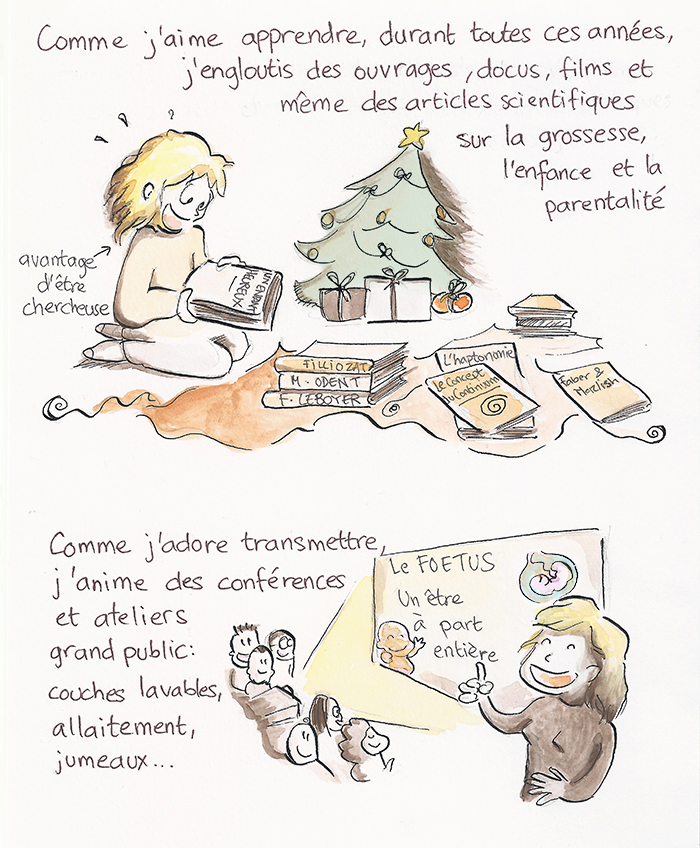 Comme j'aime apprendre, durant toutes ces années,
j'engloutis des ouvrages, docus, films et
même des articles scientifiques
sur la grossesse,
l'enfance et la
parentalité
avantage
d'être
chercheuse
UN ENFANT
HEUREUX
FILLIOZAT
M. ODENT
F. LEBOYER
L'haptonomie
Le Concept
du Continuum
Faber &
Mazlish
Comme j'adore transmettre,
j'anime des conférences
et ateliers
grand public:
couches lavables,
allaitement,
jumeaux...
Le FOETUS
Un être
à part
entière